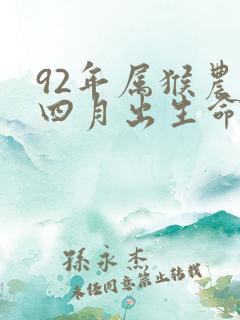 92年属猴农
四月出生命
孙永杰
未经同意禁止转载